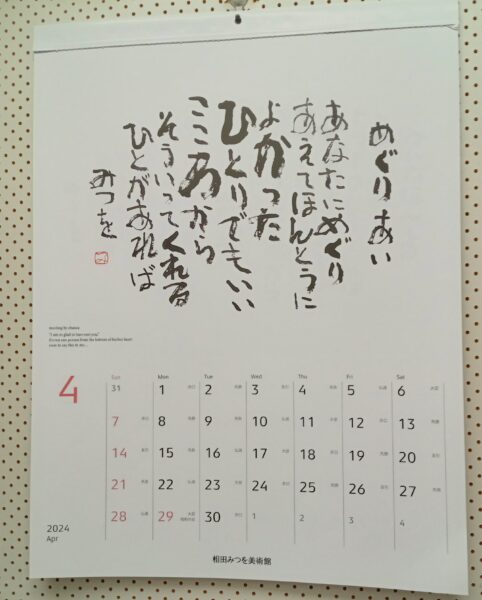 めぐりあい
あなたにめぐり
あえてほんとうに
よかった
ひとりでもいい
こころから
そういってくれる
ひとがあれば
みつを
meeting by chance
"I am so glad to have met you,"
one person from the bottom of his/her heart
were to say this to me...
4
Sun Mon Tue Wed Thu Fri Sat
31 1 2 3 4 5 6
7 8 9 10 11 12 13
14 15 16 17 18 19 20
21 22 23 24 25 26 27
28 29 昭和の日 30 1 2 3 4
2024
Apr
相田みつを美術館